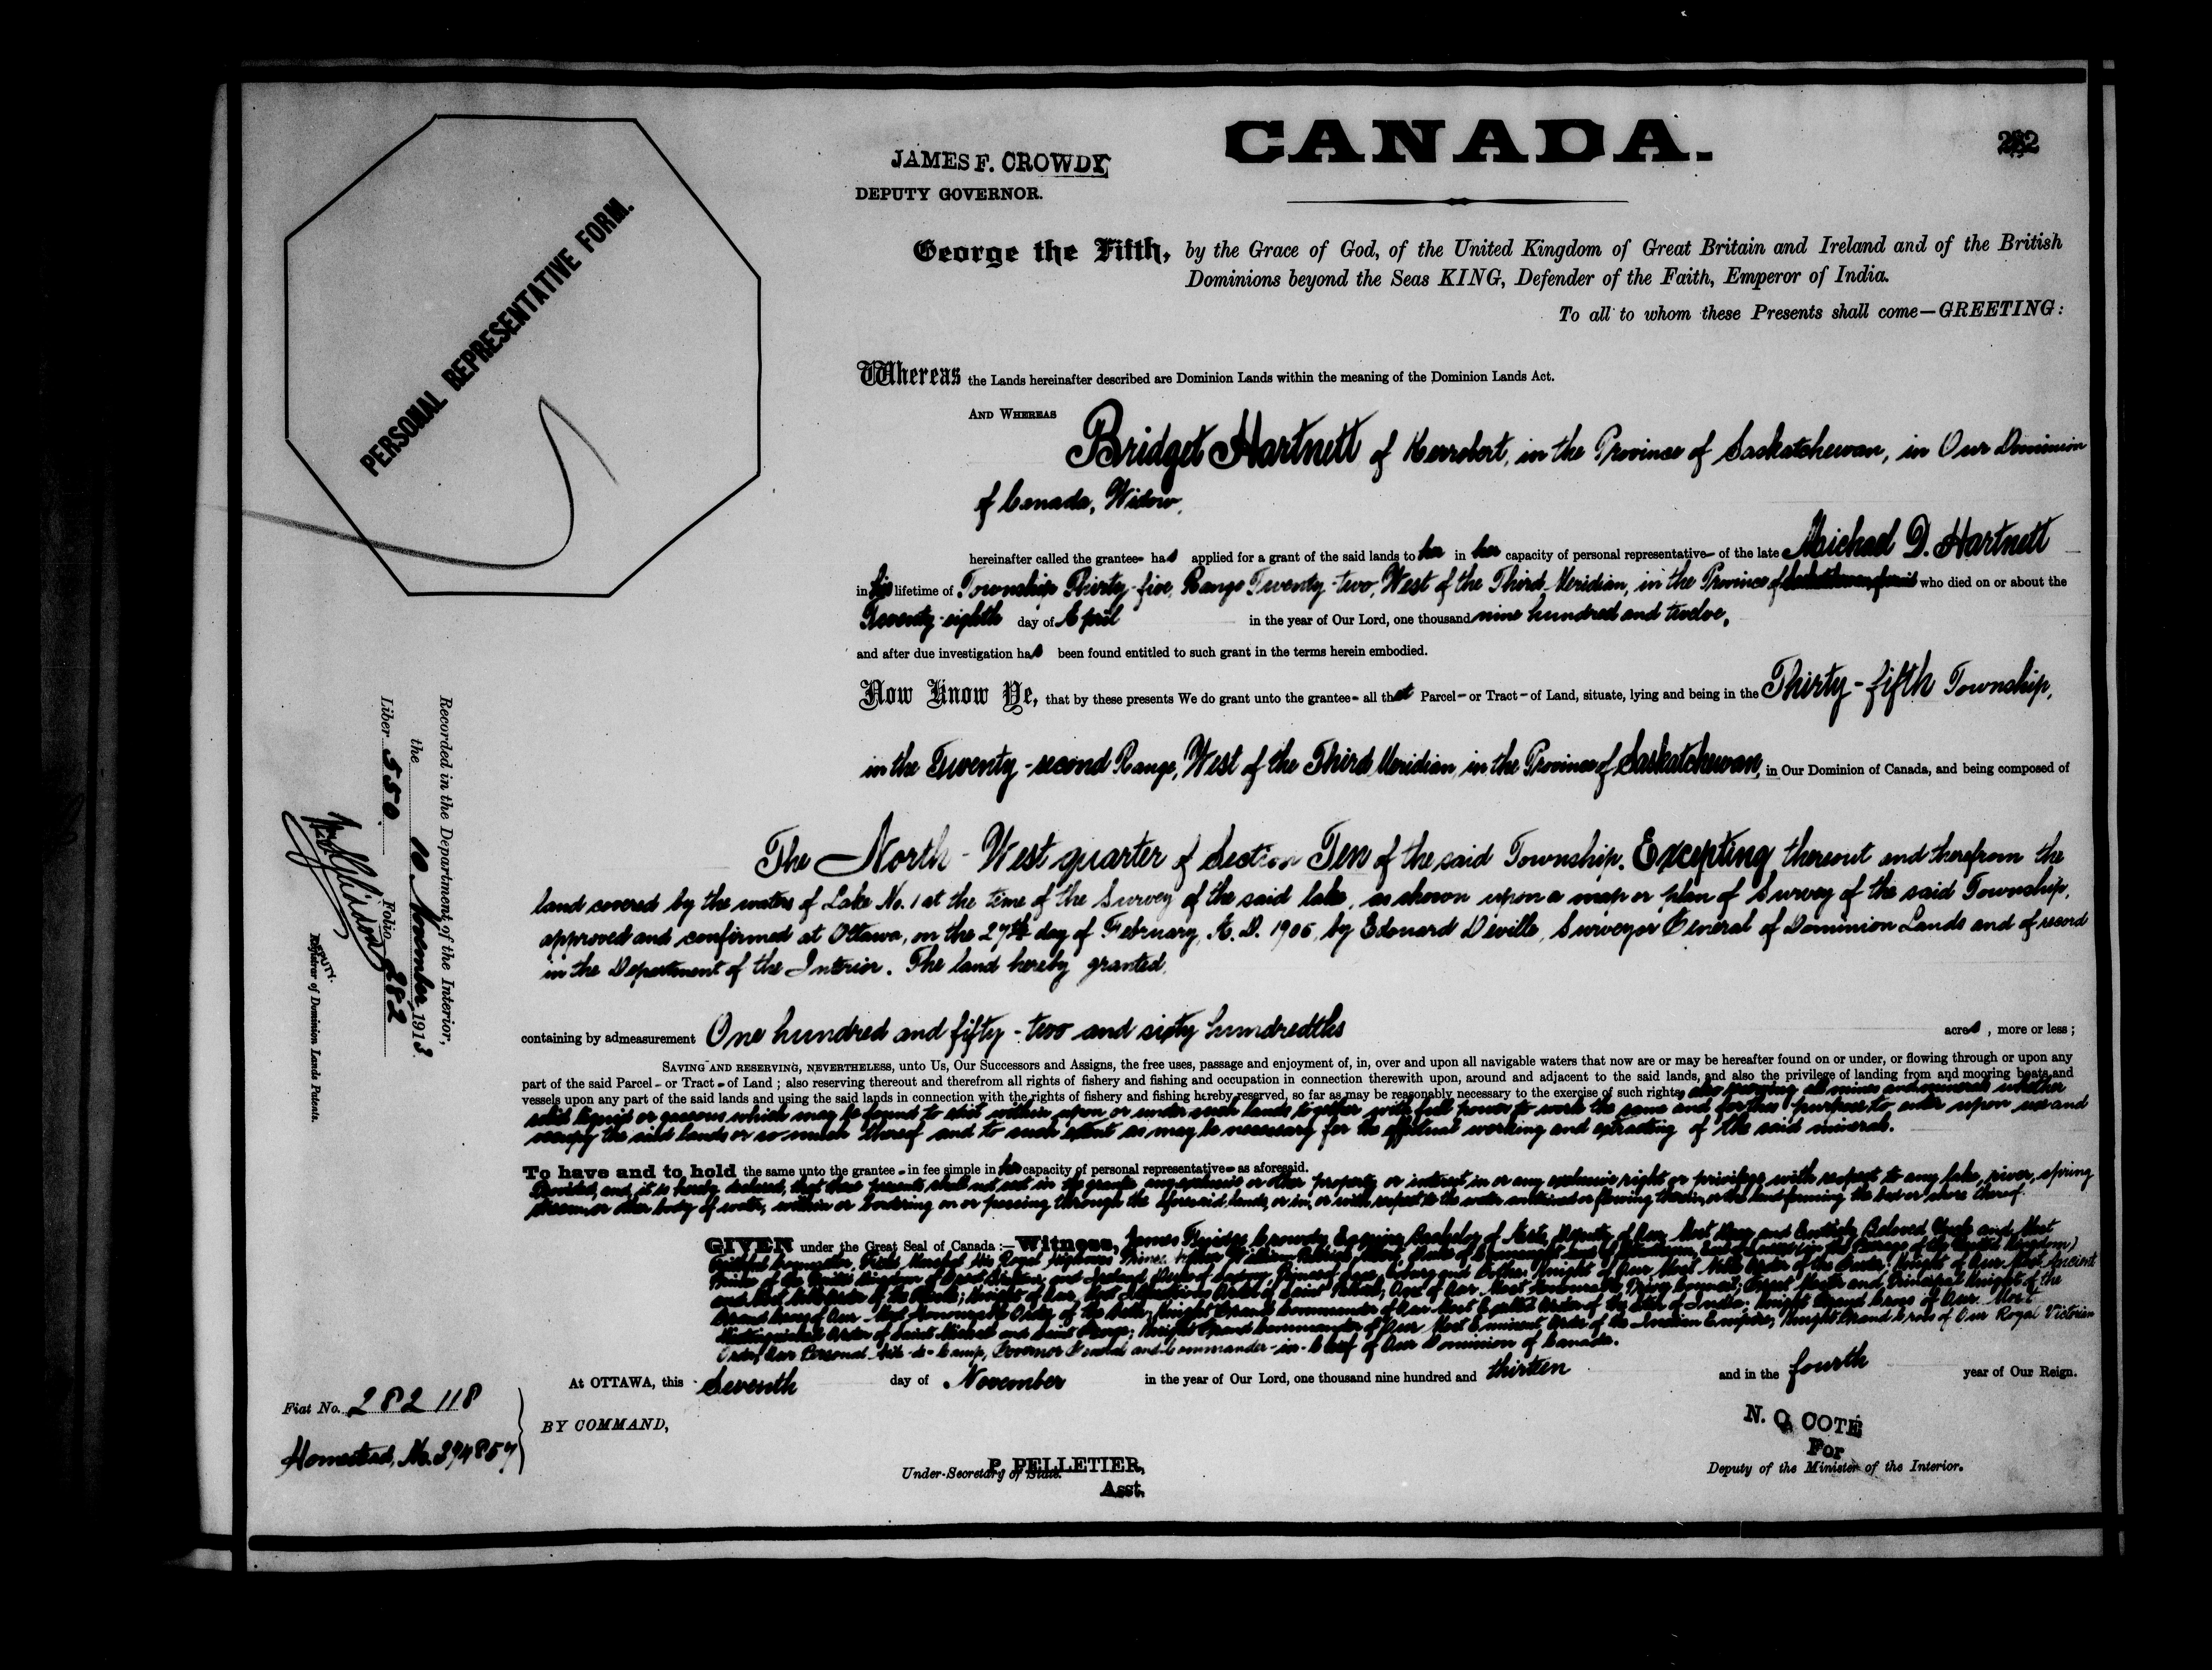 CANADA.
JAMES F. CROWDY
DEPUTY GOVERNOR.
PERSONAL REPRESENTATIVE FORM.
George the Fifth, by the Grace of God, of the United Kingdom of Great Britain and Ireland and of the British
Dominions beyond the Seas KING, Defender of the Faith, Emperor of India.
To all to whom these Presents shall come—GREETING:
Whereas the Lands hereinafter described are Dominion Lands within the meaning of the Dominion Lands Act.
AND WHEREAS
Bridget Hartnett of Kerrobert, in the Province of Saskatchewan, in Our Dominion
of Canada, Widow,
hereinafter called the grantee- has applied for a grant of the said lands to her in her capacity of personal representative- of the late Michael D. Hartnett
in his lifetime of Township Thirty-five, Range Twenty-two, West of the Third Meridian, in the Province of who died on or about the
Twenty-eighth day of April in the year of Our Lord, one thousand nine hundred and twelve,
and after due investigation has been found entitled to such grant in the terms herein embodied.
Now Know Ye, that by these presents We do grant unto the grantee- all that Parcel- or Tract- of Land, situate, lying and being in the Thirty-fifth Township,
in the Twenty-second Range, West of the Third Meridian, in the Province of Saskatchewan, in Our Dominion of Canada, and being composed of
The North-West quarter of Section Ten of the said Township. Excepting thereout and therefrom the
land covered by the waters of Lake No. 1 at the time of the Survey of the said lake, as shown upon a map or plan of Survey of the said Township,
approved and confirmed at Ottawa, on the 27th day of February, A. D. by Edouard Deville, Surveyor General of Dominion Lands and of record
in the Department of the Interior. The land hereby granted,
containing by admeasurement One hundred and fifty-two and sixty hundredths acres, more or less;
SAVING AND RESERVING, NEVERTHELESS, unto Us, Our Successors and Assigns, the free uses, passage and enjoyment of, in, over and upon all navigable waters that now are or may be hereafter found on or under, or flowing through or upon any
part of the said Parcel- or Tract- of Land; also reserving thereout and therefrom all rights of fishery and fishing and occupation in connection therewith upon, around and adjacent to the said lands, and also the privilege of landing from and mooring boats and
vessels upon any part of the said lands and using the said lands in connection with the rights of fishery and fishing hereby reserved, so far as may be reasonably necessary to the exercise of such rights, also reserving all mines and minerals whether
solid liquid or gaseous which may be found to exist within upon or under such lands together with full power to work the same and for this purpose to enter upon use and
occupy the said lands or so much thereof and to such extent as may be necessary for the effectual working and extracting of the said minerals.
To have and to hold the same unto the grantee- in fee simple in her capacity of personal representative- as aforesaid.
Provided, and it is hereby declared, that these presents shall not vest in the grantee any exclusive or other property or interest in or any exclusive right or privilege with respect to any lake, river, spring
stream or other body of water, within or bordering on or passing through the aforesaid lands, or in, or with respect to the water contained or flowing therein, or the land forming the bed or shore thereof.
GIVEN under the Great Seal of Canada:—Witness, James Crowdy, Deputy of Our Most Beloved Uncle and Most
Faithful Counsellor, Field Marshal His Royal Highness Prince
Prince of the United Kingdom of Great Britain and Ireland, Knight of Our Most Noble Order of the Garter; Knight of Our Most Ancient
and Most Noble Order of the Thistle; Knight of Our Most Illustrious Order of Saint Patrick; One of Our Most Honourable Privy Council; Great Master and Principal Knight of the
Grand Cross of Our Most Honourable Order of the Bath; Knight Grand Commander of Our Most Exalted Order of the Star of India; Knight Grand Cross of Our Most
Distinguished Order of Saint Michael and Saint George; Knight Grand Commander of Our Most Eminent Order of the Indian Empire; Knight Grand Cross of Our Royal Victorian
Order; Our Personal Aide-de-Camp, Governor General and Commander-in-Chief of Our Dominion of Canada.
At OTTAWA, this Seventh day of November in the year of Our Lord, one thousand nine hundred and thirteen and in the fourth year of Our Reign.
BY COMMAND,
P. PELLETIER,
Under-Secretary of State.
Asst.
N. O. COTÉ
For
Deputy of the Minister of the Interior.
Fiat No. 282118
Homestead, No. 394857
Recorded in the Department of the Interior,
the 10 November 1913
Liber 550. Folio 282
DEPUTY.
Registrar of Dominion Lands Patents.